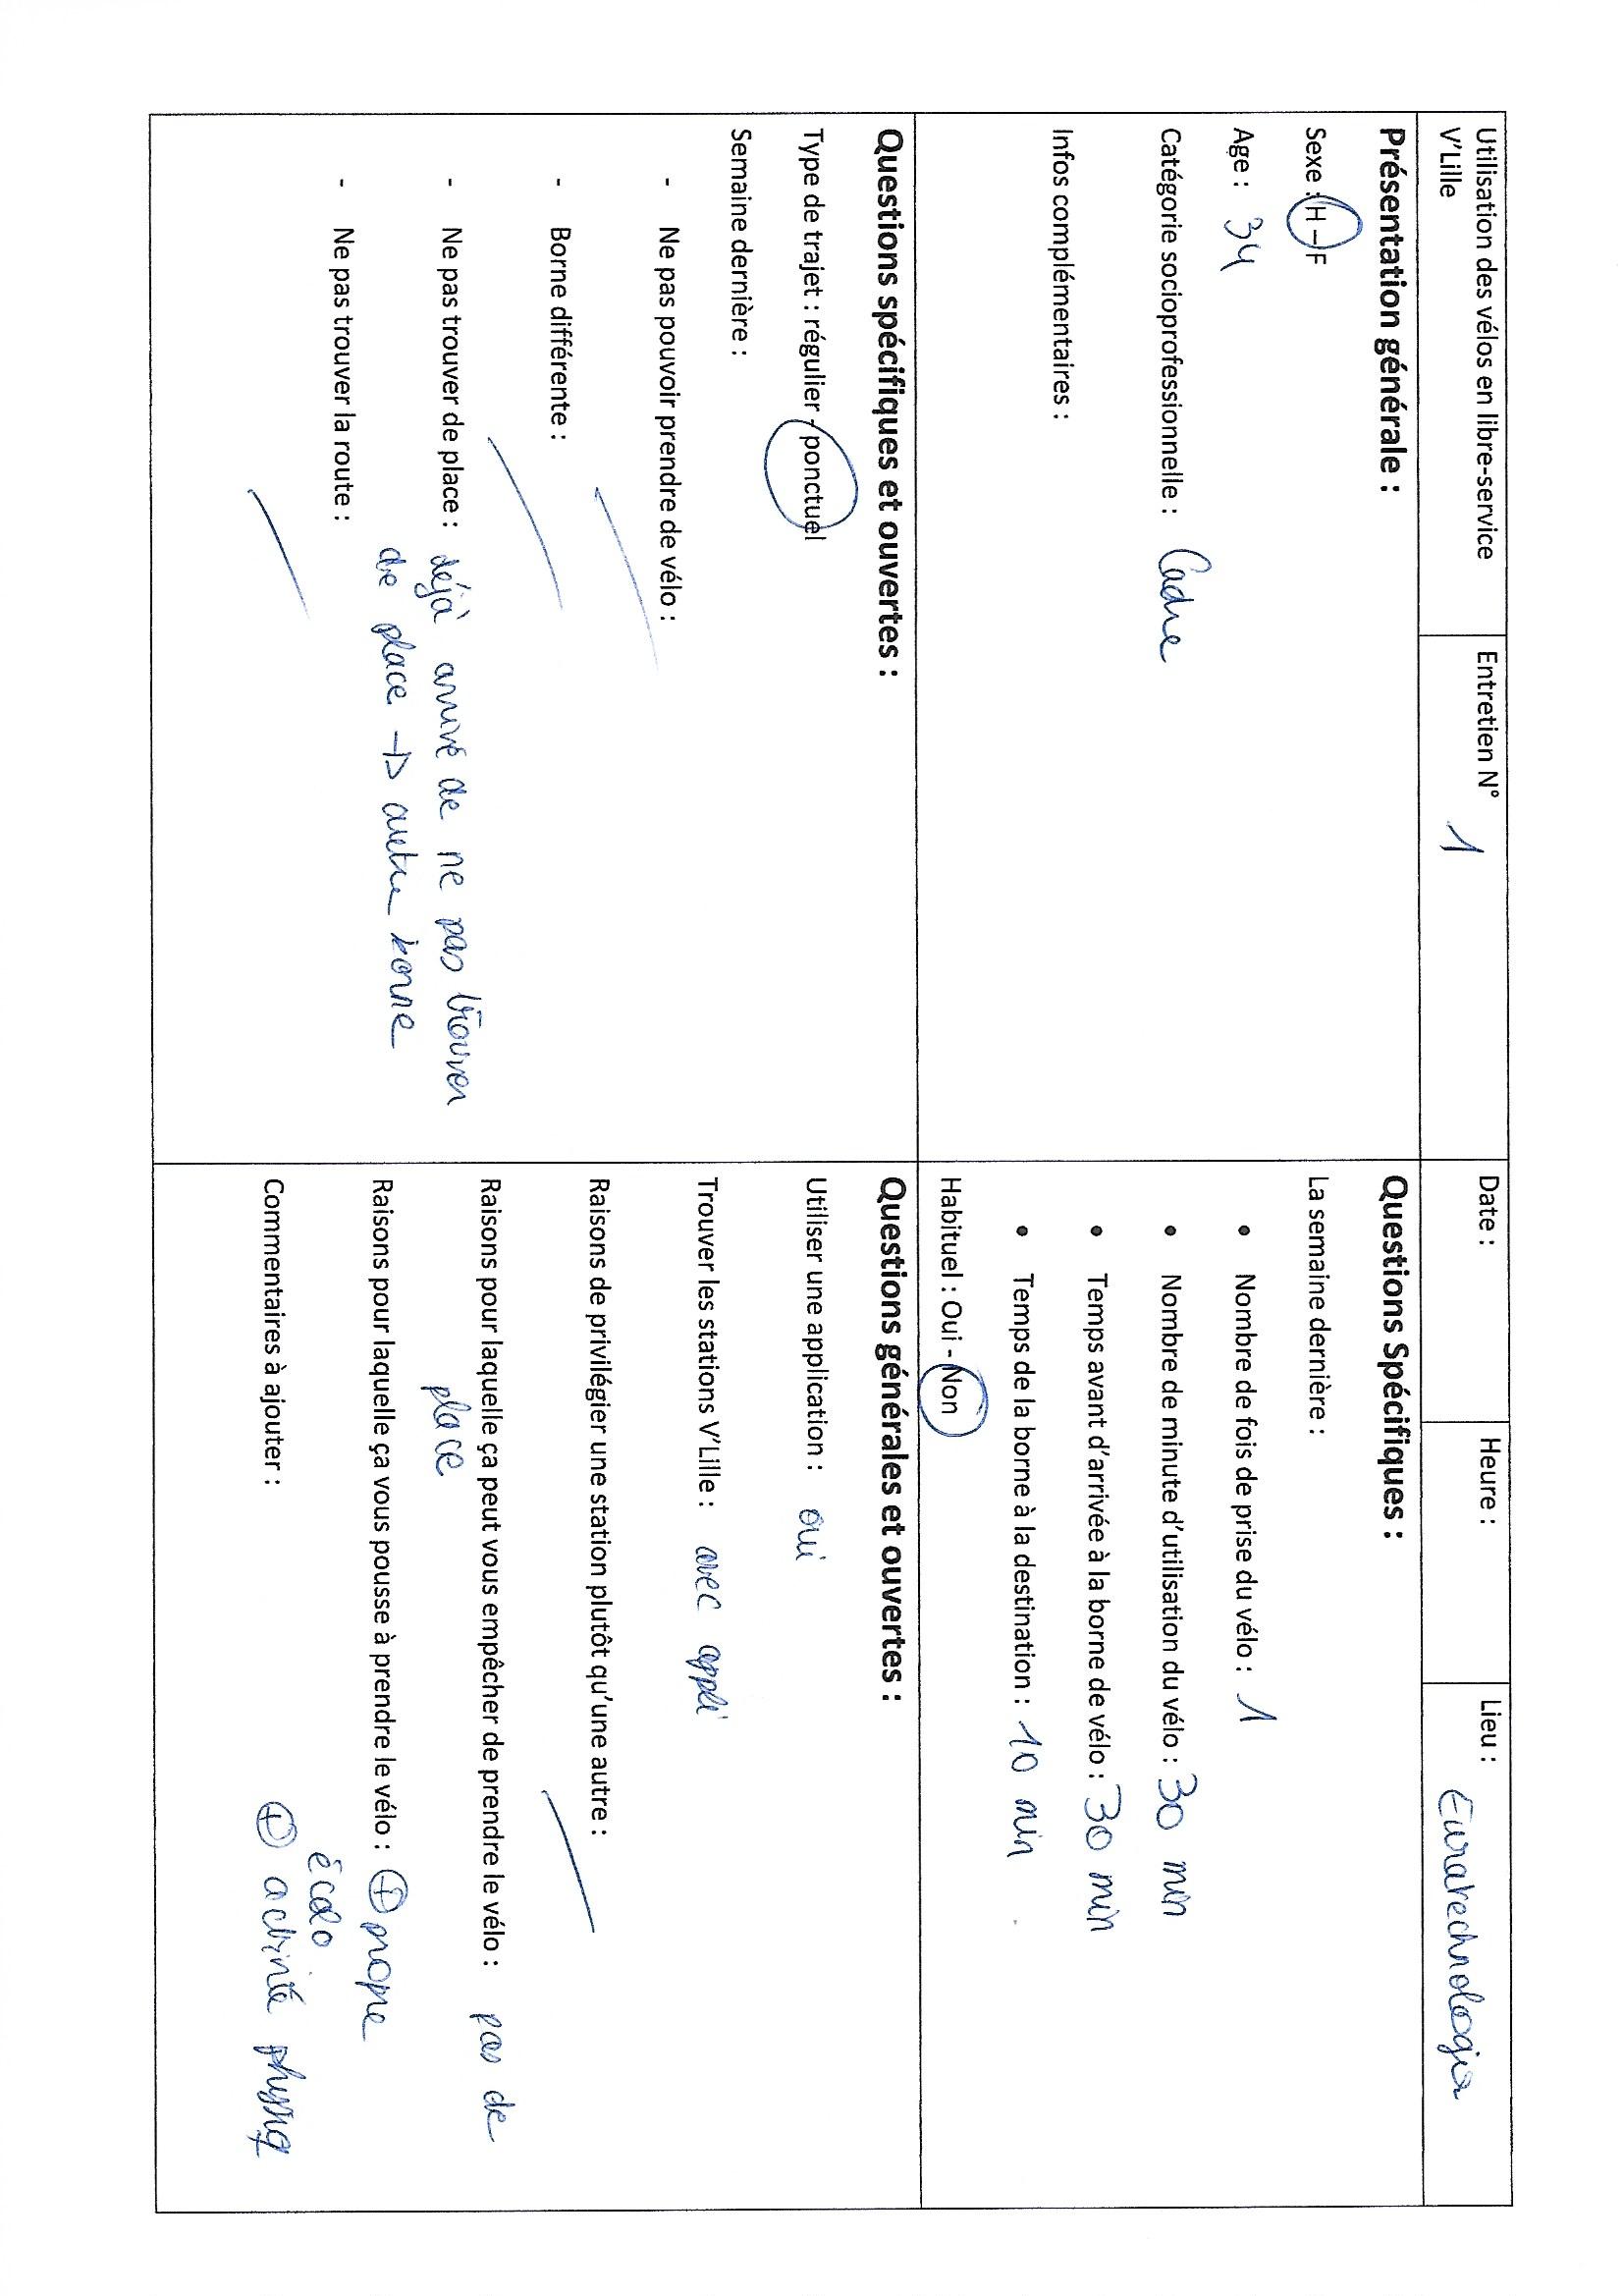 Utilisation des vélos en libre-service
V'Lille
Entretien N° 1
Date :
Heure :
Lieu : Euratechnologie
Présentation générale :
Sexe : H – F
Age : 34
Catégorie socioprofessionnelle : Cadre
Infos complémentaires :
Questions Spécifiques :
La semaine dernière :
• Nombre de fois de prise du vélo : 1
• Nombre de minute d'utilisation du vélo : 30 min
• Temps avant d'arrivée à la borne de vélo : 30 min
• Temps de la borne à la destination : 10 min
Habituel : Oui - Non
Questions spécifiques et ouvertes :
Type de trajet : régulier - ponctuel
Semaine dernière :
- Ne pas pouvoir prendre de vélo :
- Borne différente :
- Ne pas trouver de place : déjà arrivé de ne pas trouver
de place → autre borne
- Ne pas trouver la route :
Questions générales et ouvertes :
Utiliser une application : oui
Trouver les stations V'Lille : avec appli
Raisons de privilégier une station plutôt qu'une autre :
Raisons pour laquelle ça peut vous empêcher de prendre le vélo : pas de
place
Raisons pour laquelle ça vous pousse à prendre le vélo : ⊕ propre
écolo
Commentaires à ajouter : ⊕ activité physiq